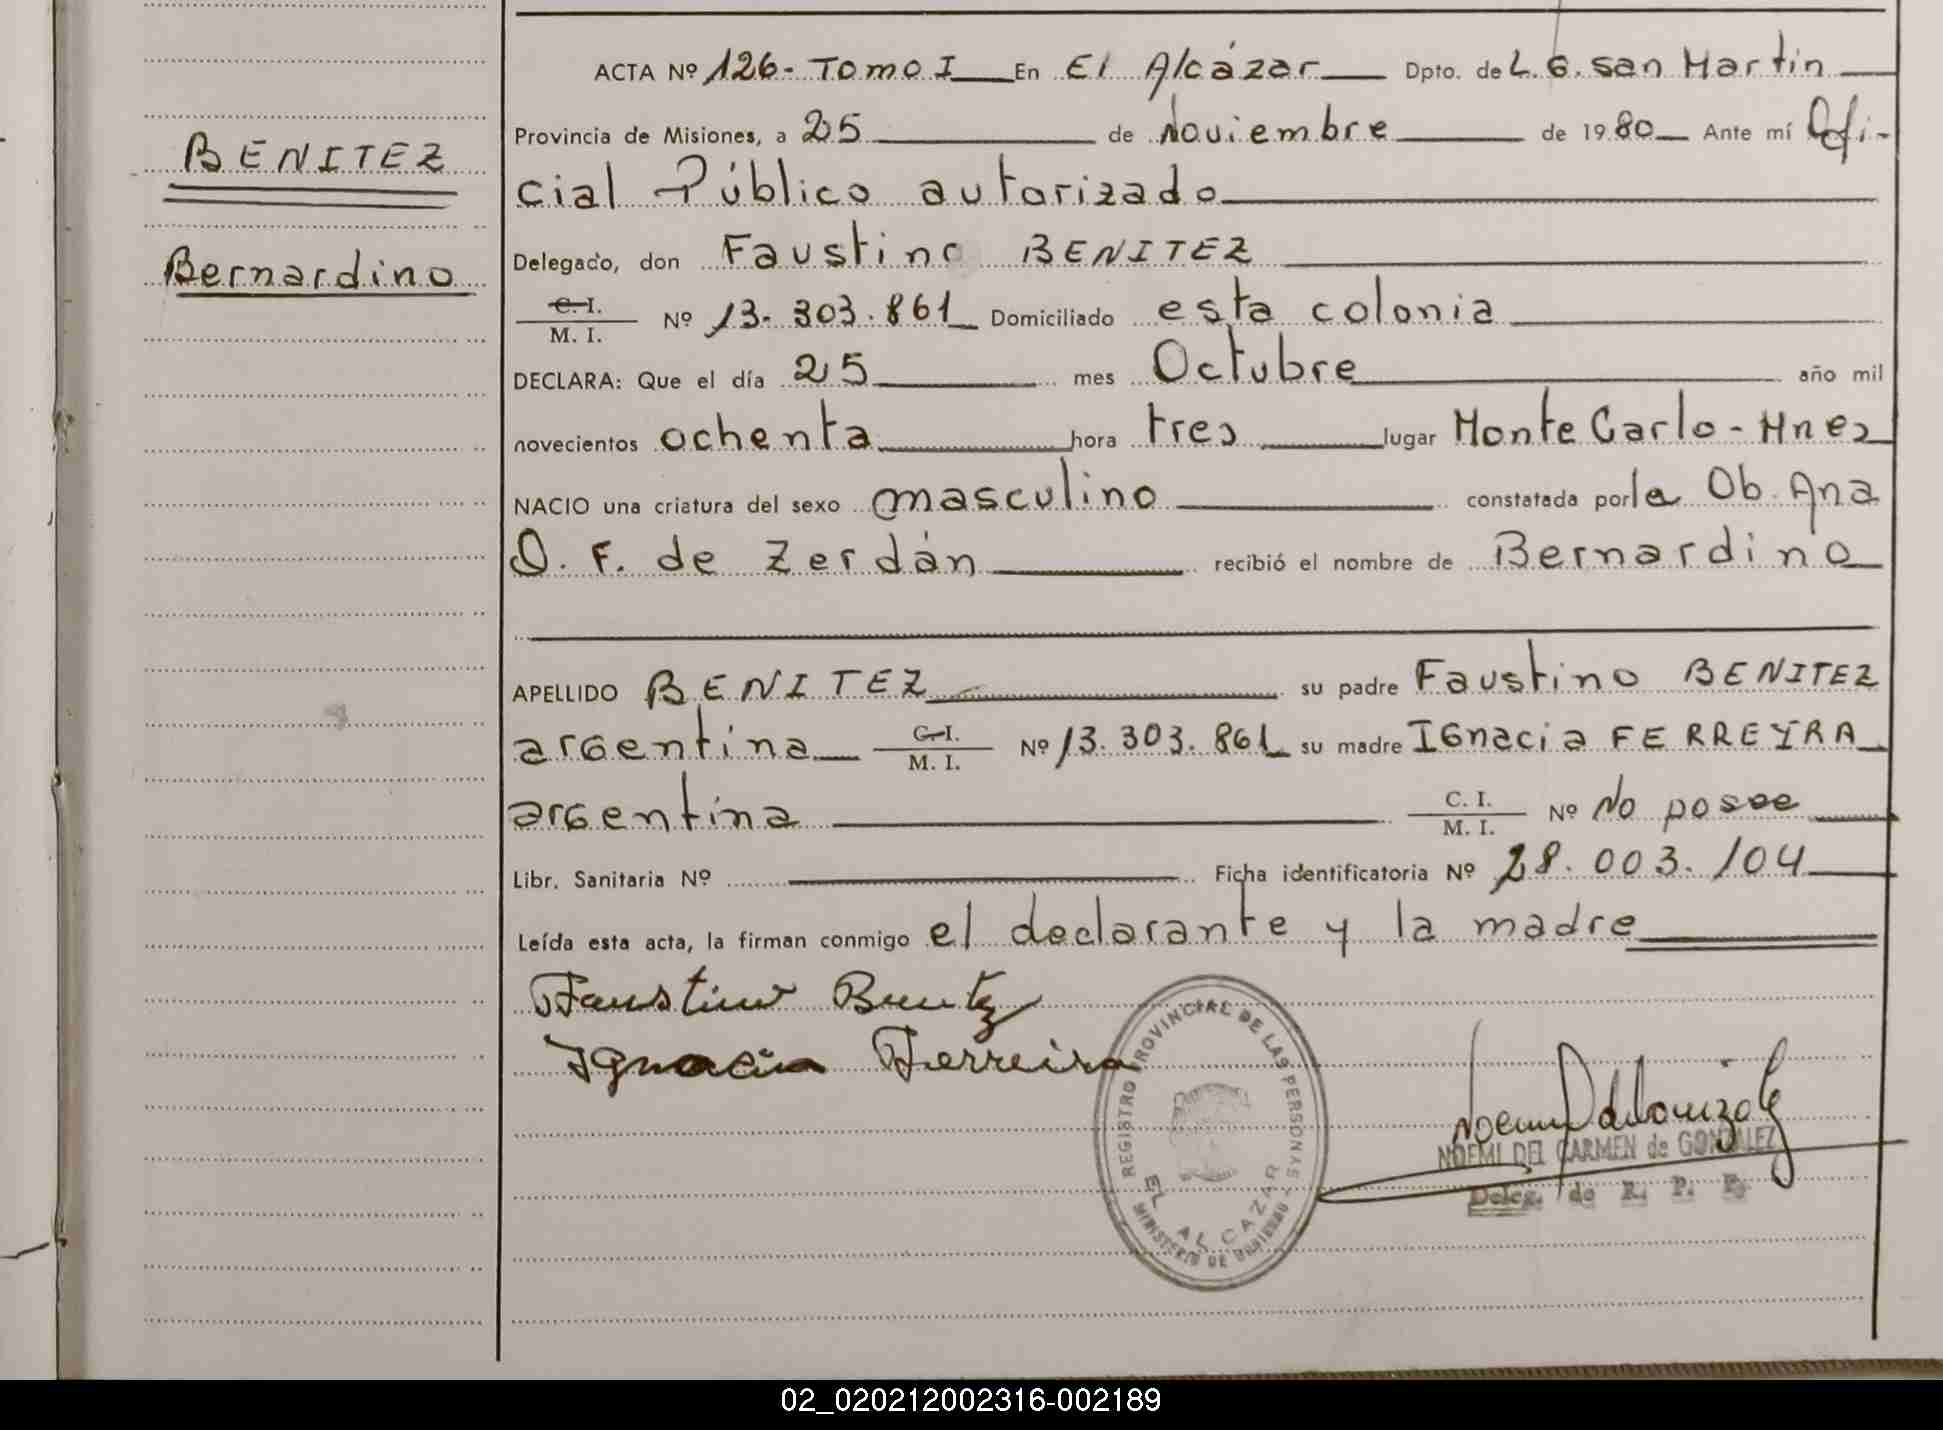 BENITEZ
Bernardino
ACTA Nº 126- Tomo I En El Alcázar Dpto. de L. G. san Martin
Provincia de Misiones, a 25 de Noviembre de 1980 Ante mí Ofi-
cial Público autorizado
Delegado, don Faustino BENITEZ
C. I.
M. I. Nº 13. 303. 861 Domiciliado esta colonia
DECLARA: Que el día 25 mes Octubre año mil
novecientos ochenta hora tres lugar Monte Carlo - Mnes
NACIO una criatura del sexo masculino constatada por la Ob. Ana
O. F. de Zerdán recibió el nombre de Bernardino
APELLIDO BENITEZ su padre Faustino BENITEZ
argentina C. I. M. I. Nº 13. 303. 861 su madre Ignacia FERREYRA
argentina C. I. M. I. Nº No posee
Libr. Sanitaria Nº Ficha identificatoria Nº 28. 003. 104
Leída esta acta, la firman conmigo el declarante y la madre
Faustino Benitez
Ignacia Ferreira
REGISTRO PROVINCIAL DE LAS PERSONAS
EL ALCAZAR
MINISTERIO DE GOBIERNO
NOEMI DEL CARMEN de GONZALEZ
Deleg. de R. P. P.
02_020212002316-002189